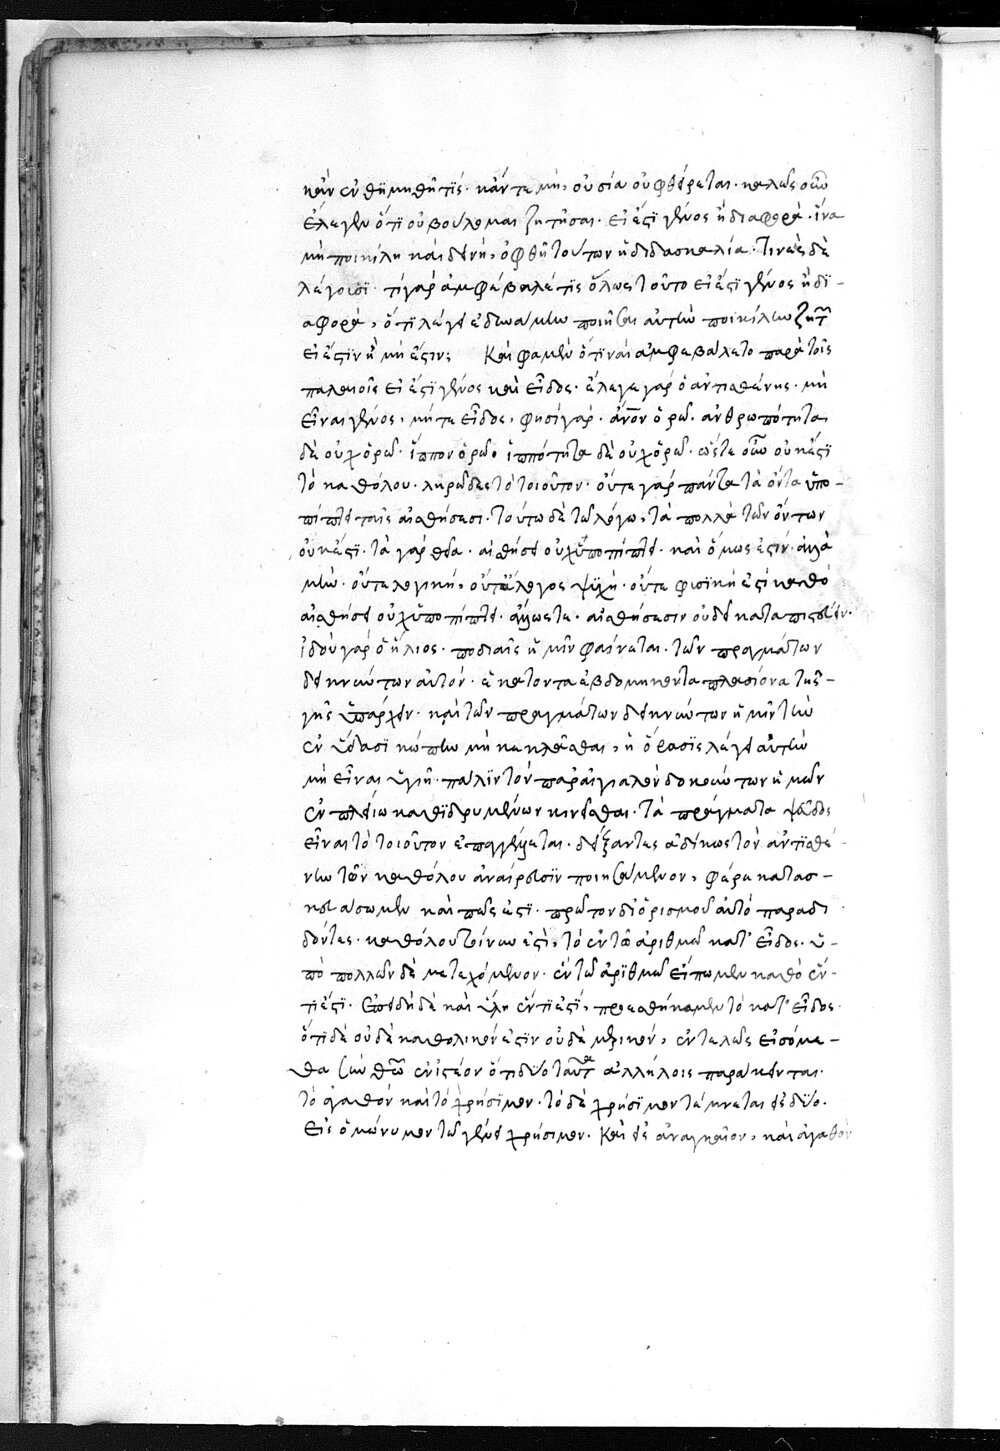 κἂν ἐνθυμηθῇ τίς· κἄν τε μὴ, οὐσία οὐ φθείρεται· καλῶς οὖν
ἔλεγεν ὅτι οὐ βούλομαι ζητῆσαι· εἰ ἐστὶ γένος ἢ διαφορὰ· ἵνα
μὴ ποικίλη καὶ δεινὴ, ὀφθῆ τούτων ἡ διδασκαλία· Τινὲς δὲ
λέγουσι· τί γὰρ ἀμφέβαλέ τις ὅλως τοῦτο εἰ ἐστὶ γένος ἢ δι-
αφορὰ, ὅτι λέγει ἐδυνάμην ποιῆσαι αὐτὴν ποικίλην ζητῶν
εἰ ἔστιν ἢ μὴ ἔστιν; Καὶ φαμὲν ὅτι ναὶ ἀμφεβάλετο παρὰ τοῖς
παλαιοῖς εἰ ἐστὶ γένος καὶ εἶδος· ἔλεγε γὰρ ὁ ἀντισθένης· μὴ
εἶναι γένος, μήτε εἶδος, φησὶ γάρ· ἄνον ὁρῶ· ἀνθρωπότητα
δὲ οὐχ ὁρῶ· ἵππον ὁρῶ· ἱππότητα δὲ οὐχ ὁρῶ· ὥστε οὖν οὐκ ἔστι
τὸ καθόλου· ληρῶδες τὸ τοιοῦτον· οὔτε γὰρ πάντα τὰ ὄντα ὑπο-
πίπτει ταῖς αἰσθήσεσι· τούτω δὲ τῶ λόγω, τὰ πολλὰ τῶν ὄντων
οὐκ ἔστι· τὰ γὰρ θεῖα· αἰσθήσει οὐχ ὑποπίπτει· καὶ ὅμως ἐστίν· ἀλλὰ
μὴν· οὔτε λογικὴ, οὔτε ἄλογος ψυχὴ· οὔτε φυσικὴ ἐστὶ καθὸ
αἰσθήσει οὐχ ὑποπίπτει· ἄλλως τε· αἰσθήσεσιν οὐ δεῖ καταπιστεύειν·
ἰδοὺ γὰρ ὁ ἥλιος· ποδιαῖς ἡμῖν φαίνεται· τῶν πραγμάτων
δεικνύντων αὐτόν· ἑκατοντα ἑβδομηκοντα πλασίονα τῆς
γῆς ὑπάρχειν· καὶ τῶν πραγμάτων δεικνύντων ἡμῖν τὴν
ἐν ὕδασι κώπην μὴ κεκλᾶσθαι, ἡ ὅρασις λέγει αὐτὴν
μὴ εἶναι ὑγιῆ· πάλιν τὸν παρ' αἰγιαλὸν δοκούντων ἡμῶν
ἐν πλοίω καθιδρυμένων κινεῖσθαι· τὰ πράγματα ψεῦδος
εἶναι τὸ τοιοῦτον ἐπαγγέλλεται· δείξαντες ἀδίκως τὸν ἀντισθέ-
νην τῶν καθόλου ἀναίρεσιν ποιησάμενον, φέρε κατασ-
κευάσωμεν καὶ πῶς ἐστὶ· πρῶτον δι' ὁρισμοῦ αὐτὸ παραδι
δόντες· καθόλου τοίνυν ἐστὶ, τὸ ἓν τῶ ἀριθμῶ κατ' εἶδος· ὑ-
πὸ πολλῶν δὲ μετεχόμενον· ἓν τῶ ἀριθμῶ εἴπωμεν καθὸ ἕν
τί ἐστί· Ἐπειδὴ δὲ καὶ ὕλη ἕν τι ἐστὶ, προσεθήκαμεν τὸ κατ' εἶδος·
ὅτι δὲ οὐδὲ καθολικόν ἐστιν οὐδὲ μερικόν, ἐντελῶς εἰσόμε-
θα σὺν θεῶ ἐνιστέον ὅτι δύο ταῦτα ἀλλήλοις παράκεινται·
τὸ ἀγαθὸν καὶ τὸ χρήσιμον· τὸ δὲ χρήσιμον τέμνεται εἰς δύο·
Εἰς ὁμώνυμον τῶ γένει χρήσιμον· Καὶ εἰς ἀναγκαῖον, καὶ ἀγαθὸν